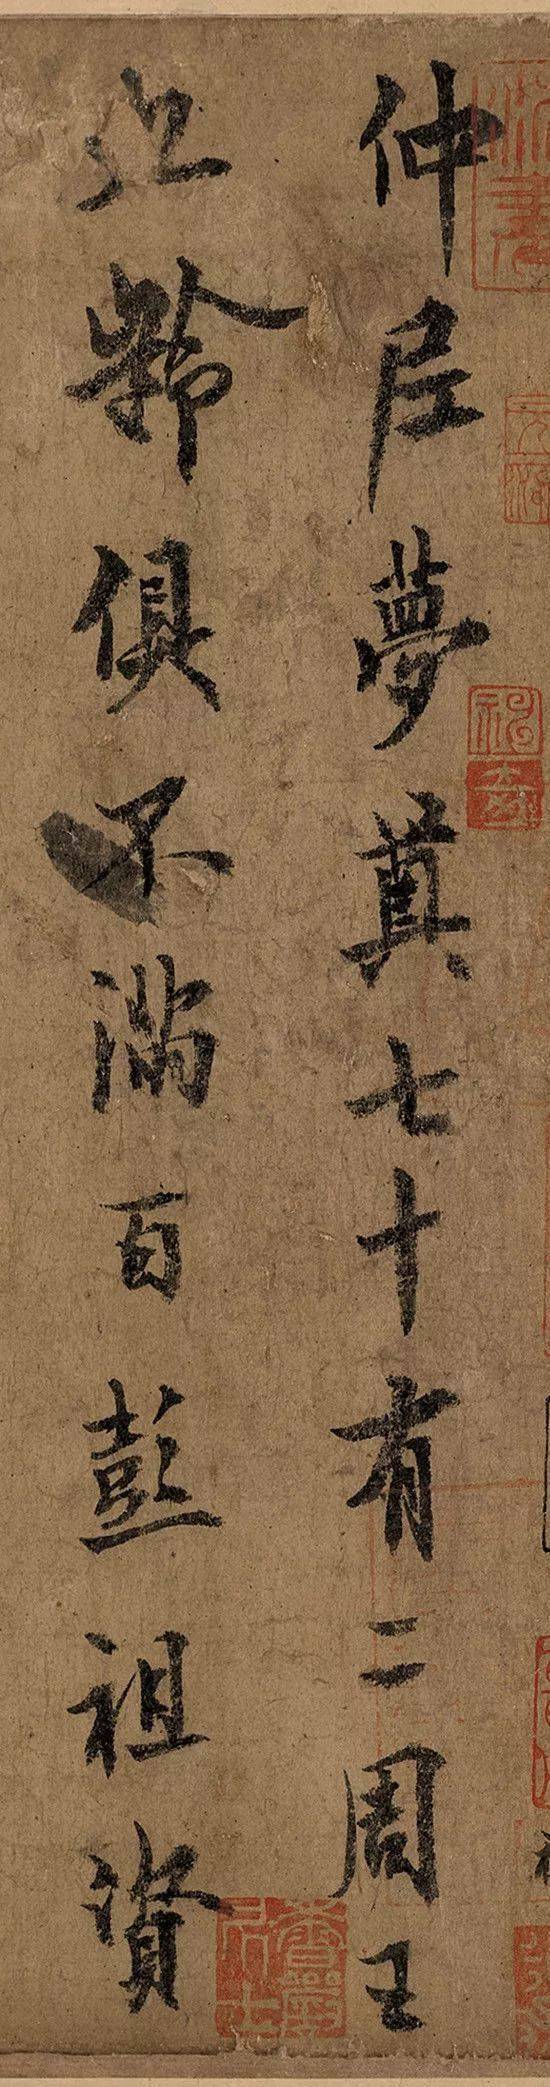 仲尼夢奠七十有二周王
九齡俱不滿百彭祖資